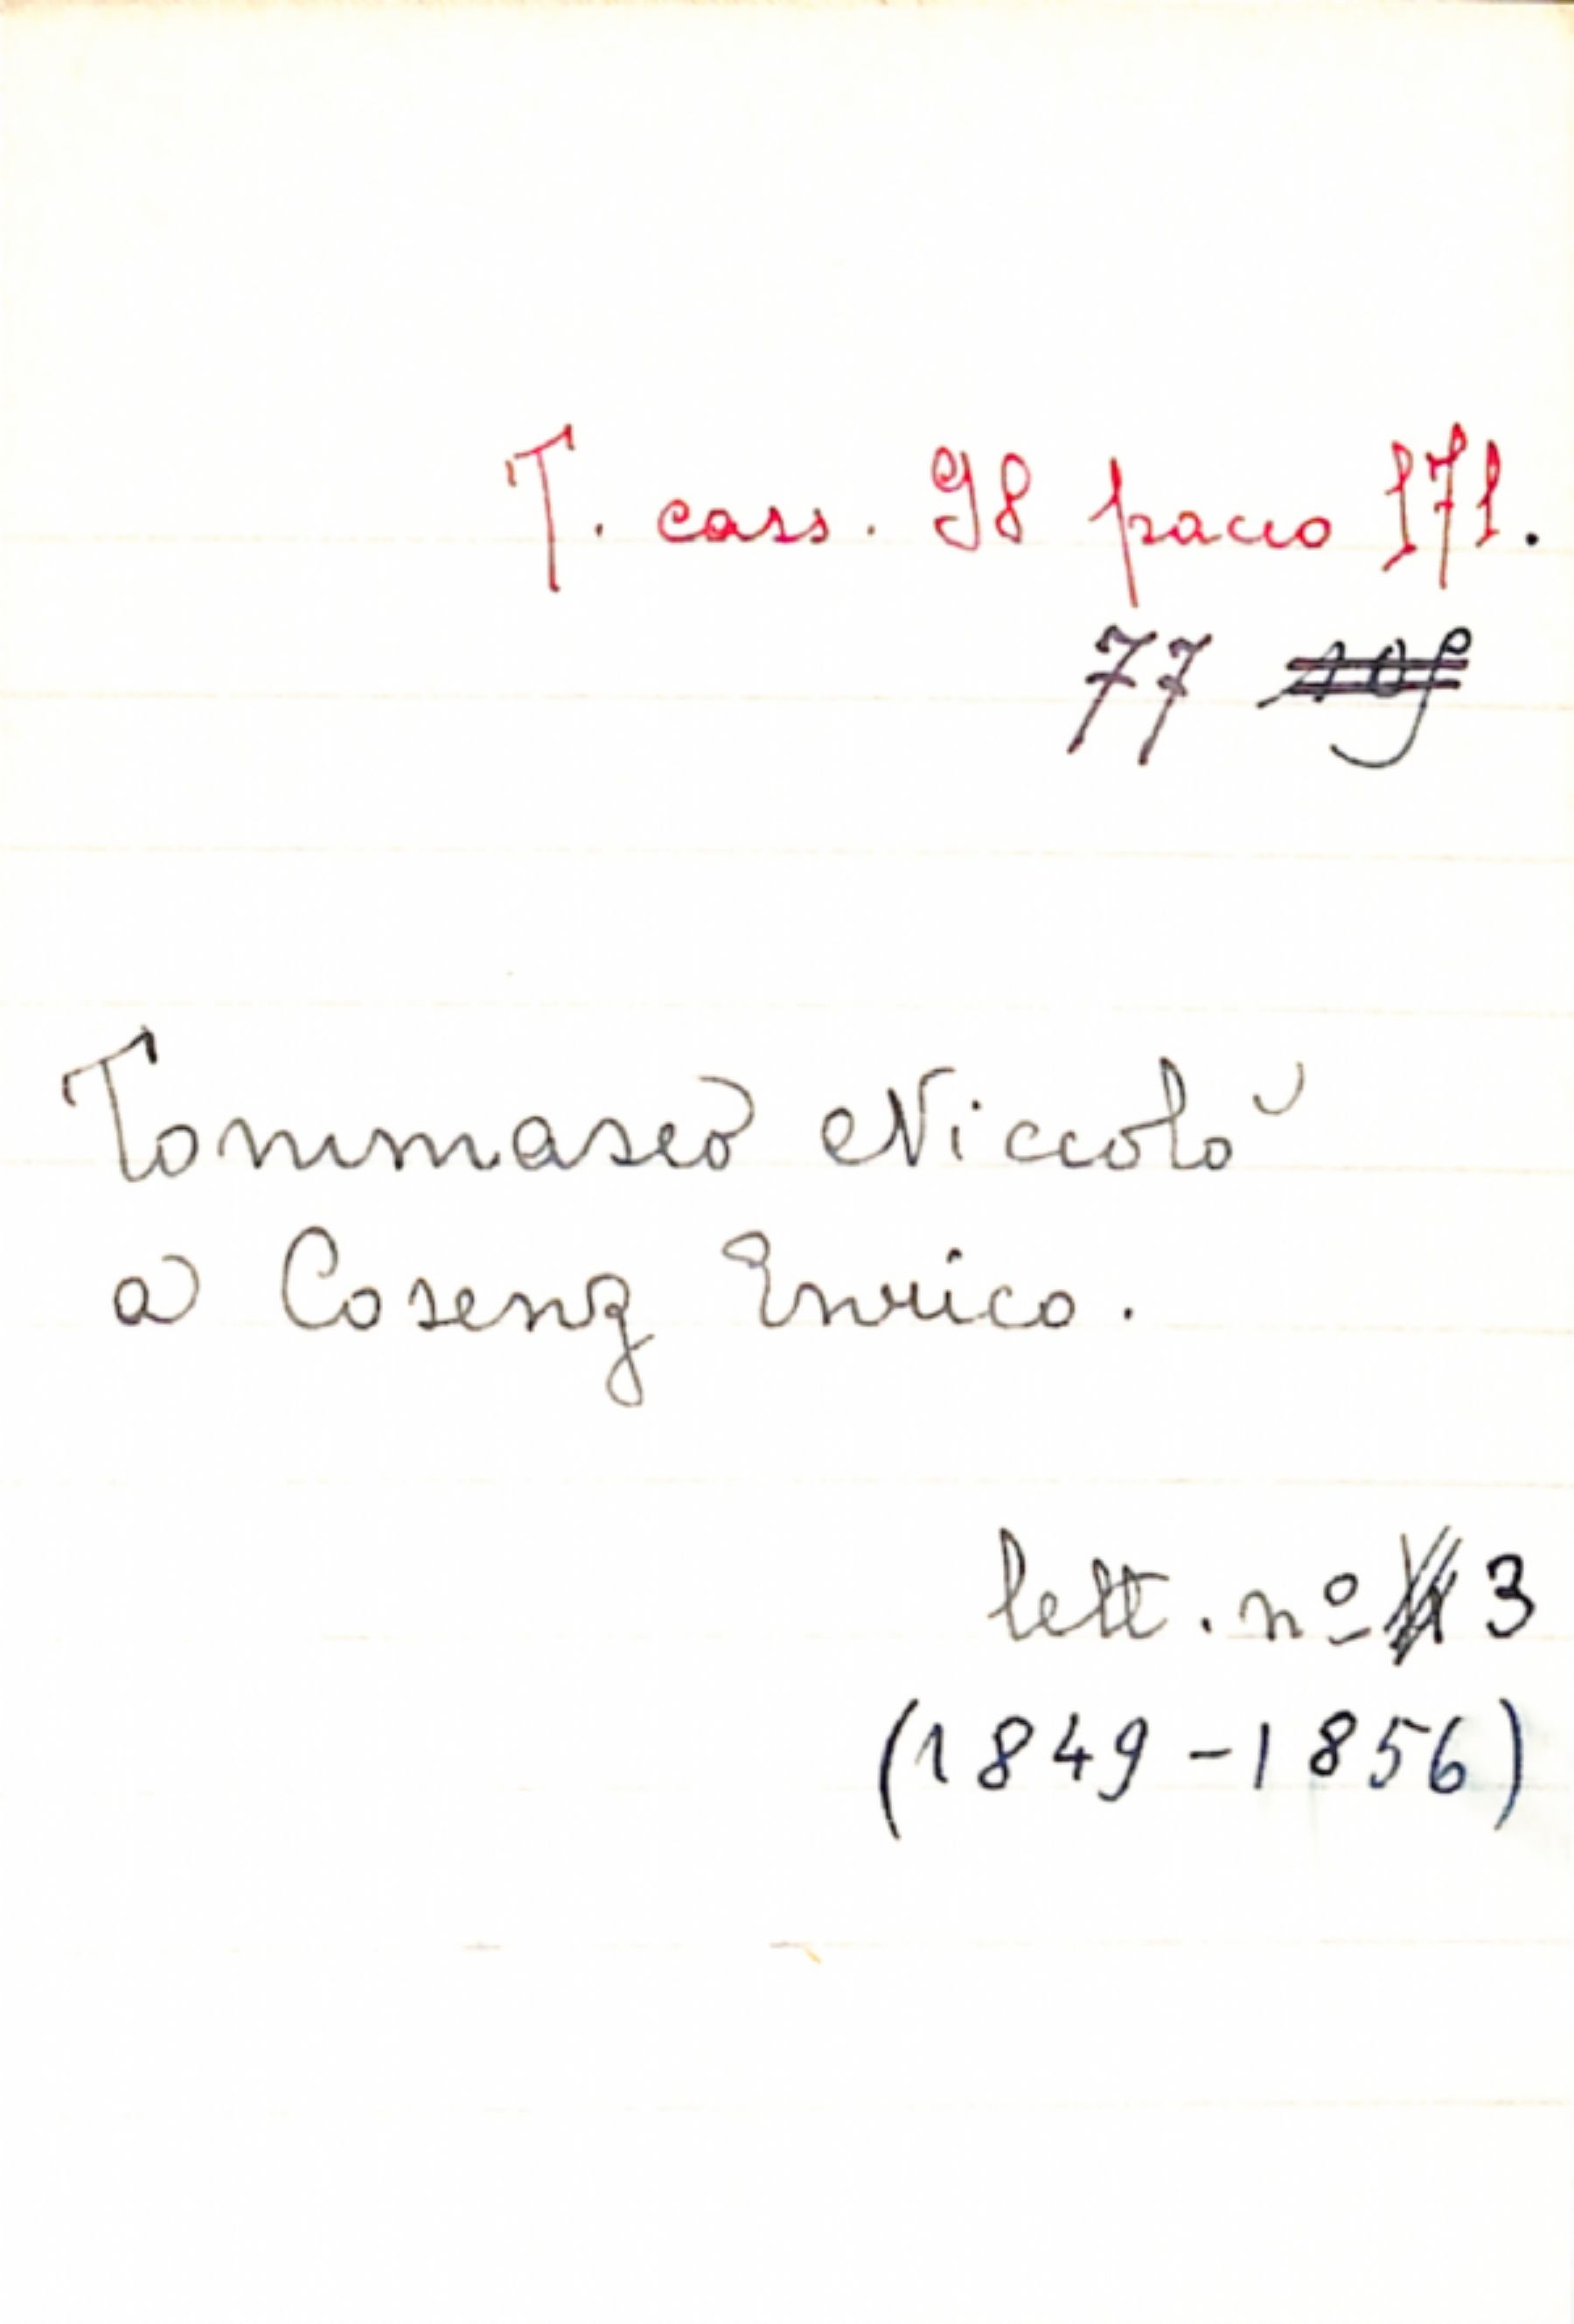 T. cass. 98 pacco 171.
77
Tommaseo Niccolò
a Cosenz Enrico.
lett. nº 3
(1849-1856)